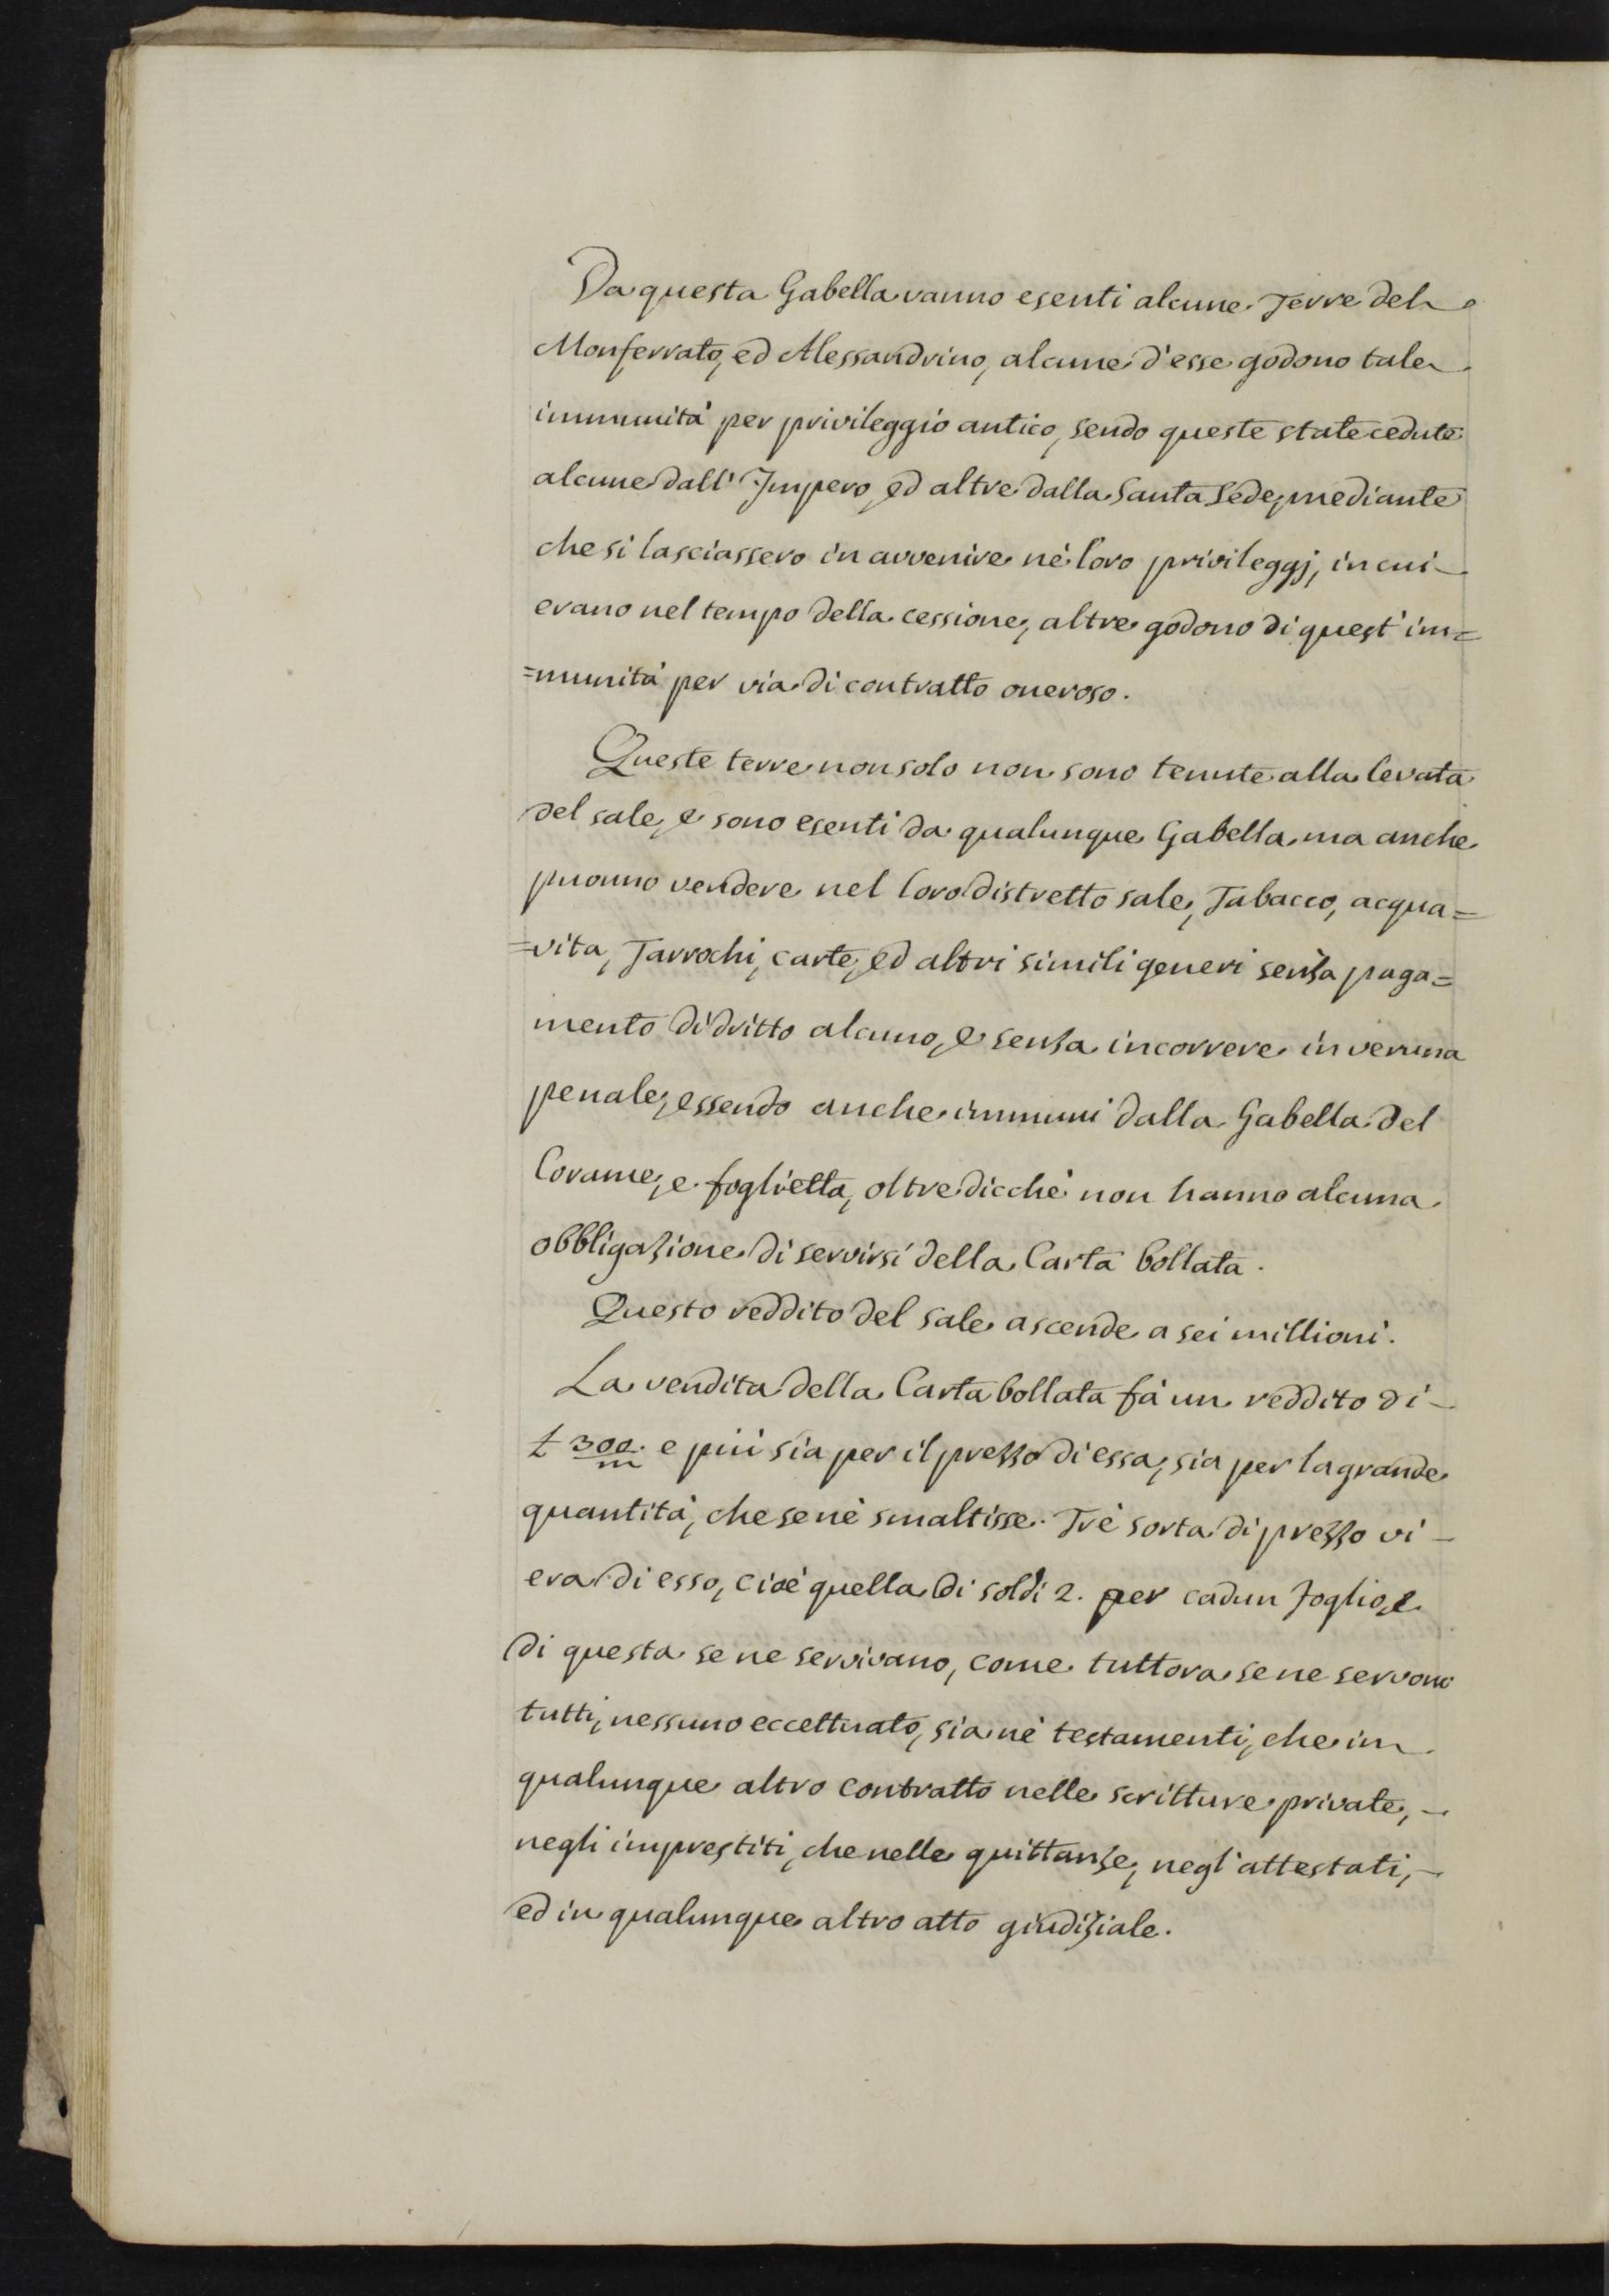 Da questa Gabella vanno esenti alcune Terre del
Monferrato, ed Alessandrino, alcune d'esse godono tale
immunità per privileggio antico, sendo queste state cedute
alcune dall' Impero, ed altre dalla Santa Sede, mediante
che si lasciassero in avvenire nè loro privileggj, in cui
erano nel tempo della cessione, altre godono di quest' im=
=munità per via di contratto oneroso.
Queste terre non solo non sono tenute alla levata
del sale, e sono esenti da qualunque Gabella, ma anche
puonno vendere nel loro distretto sale, Tabacco, acqua=
=vita, Tarrochi, carte, ed altri simili generi senza paga=
mento di dritto alcuno, e senza incorrere in veruna
penale, essendo anche immuni dalla Gabella del
Corame, e foglietta, oltre dicchè non hanno alcuna
obbligazione di servirsi della Carta bollata.
Questo reddito del sale ascende a sei millioni.
La vendita della Carta bollata fà un reddito di
£ 300/m e più sia per il prezzo di essa, sia per la grande
quantità, che se nè smaltisse. Trè sorta di prezzo vi
era di esso, cioè quella di soldi 2. per cadun foglio, e
di questa se ne servivano, come tuttora se ne servono
tutti, nessuno eccettuato, sia nè testamenti, che in
qualunque altro contratto nelle scritture private,
negli imprestiti, che nelle quittanze, negl' attestati,
ed in qualunque altro atto giudiziale.